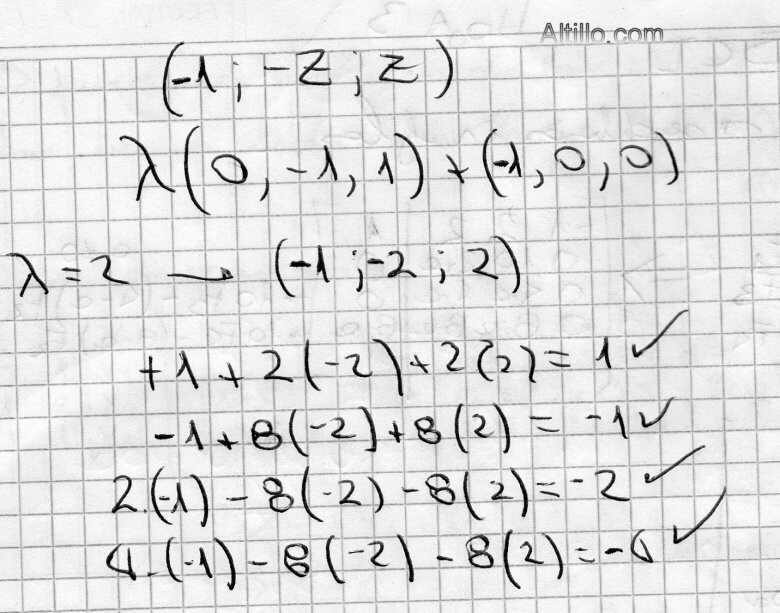 Altillo.com
(-1 ; -z ; z)
λ(0, -1, 1) + (-1, 0, 0)
λ = 2 → (-1 ; -2 ; 2)
+1 + 2(-2) + 2(2) = 1 ✓
-1 + 8(-2) + 8(2) = -1 ✓
2.(-1) - 8(-2) - 8(2) = -2 ✓
4.(-1) - 8(-2) - 8(2) = -4 ✓